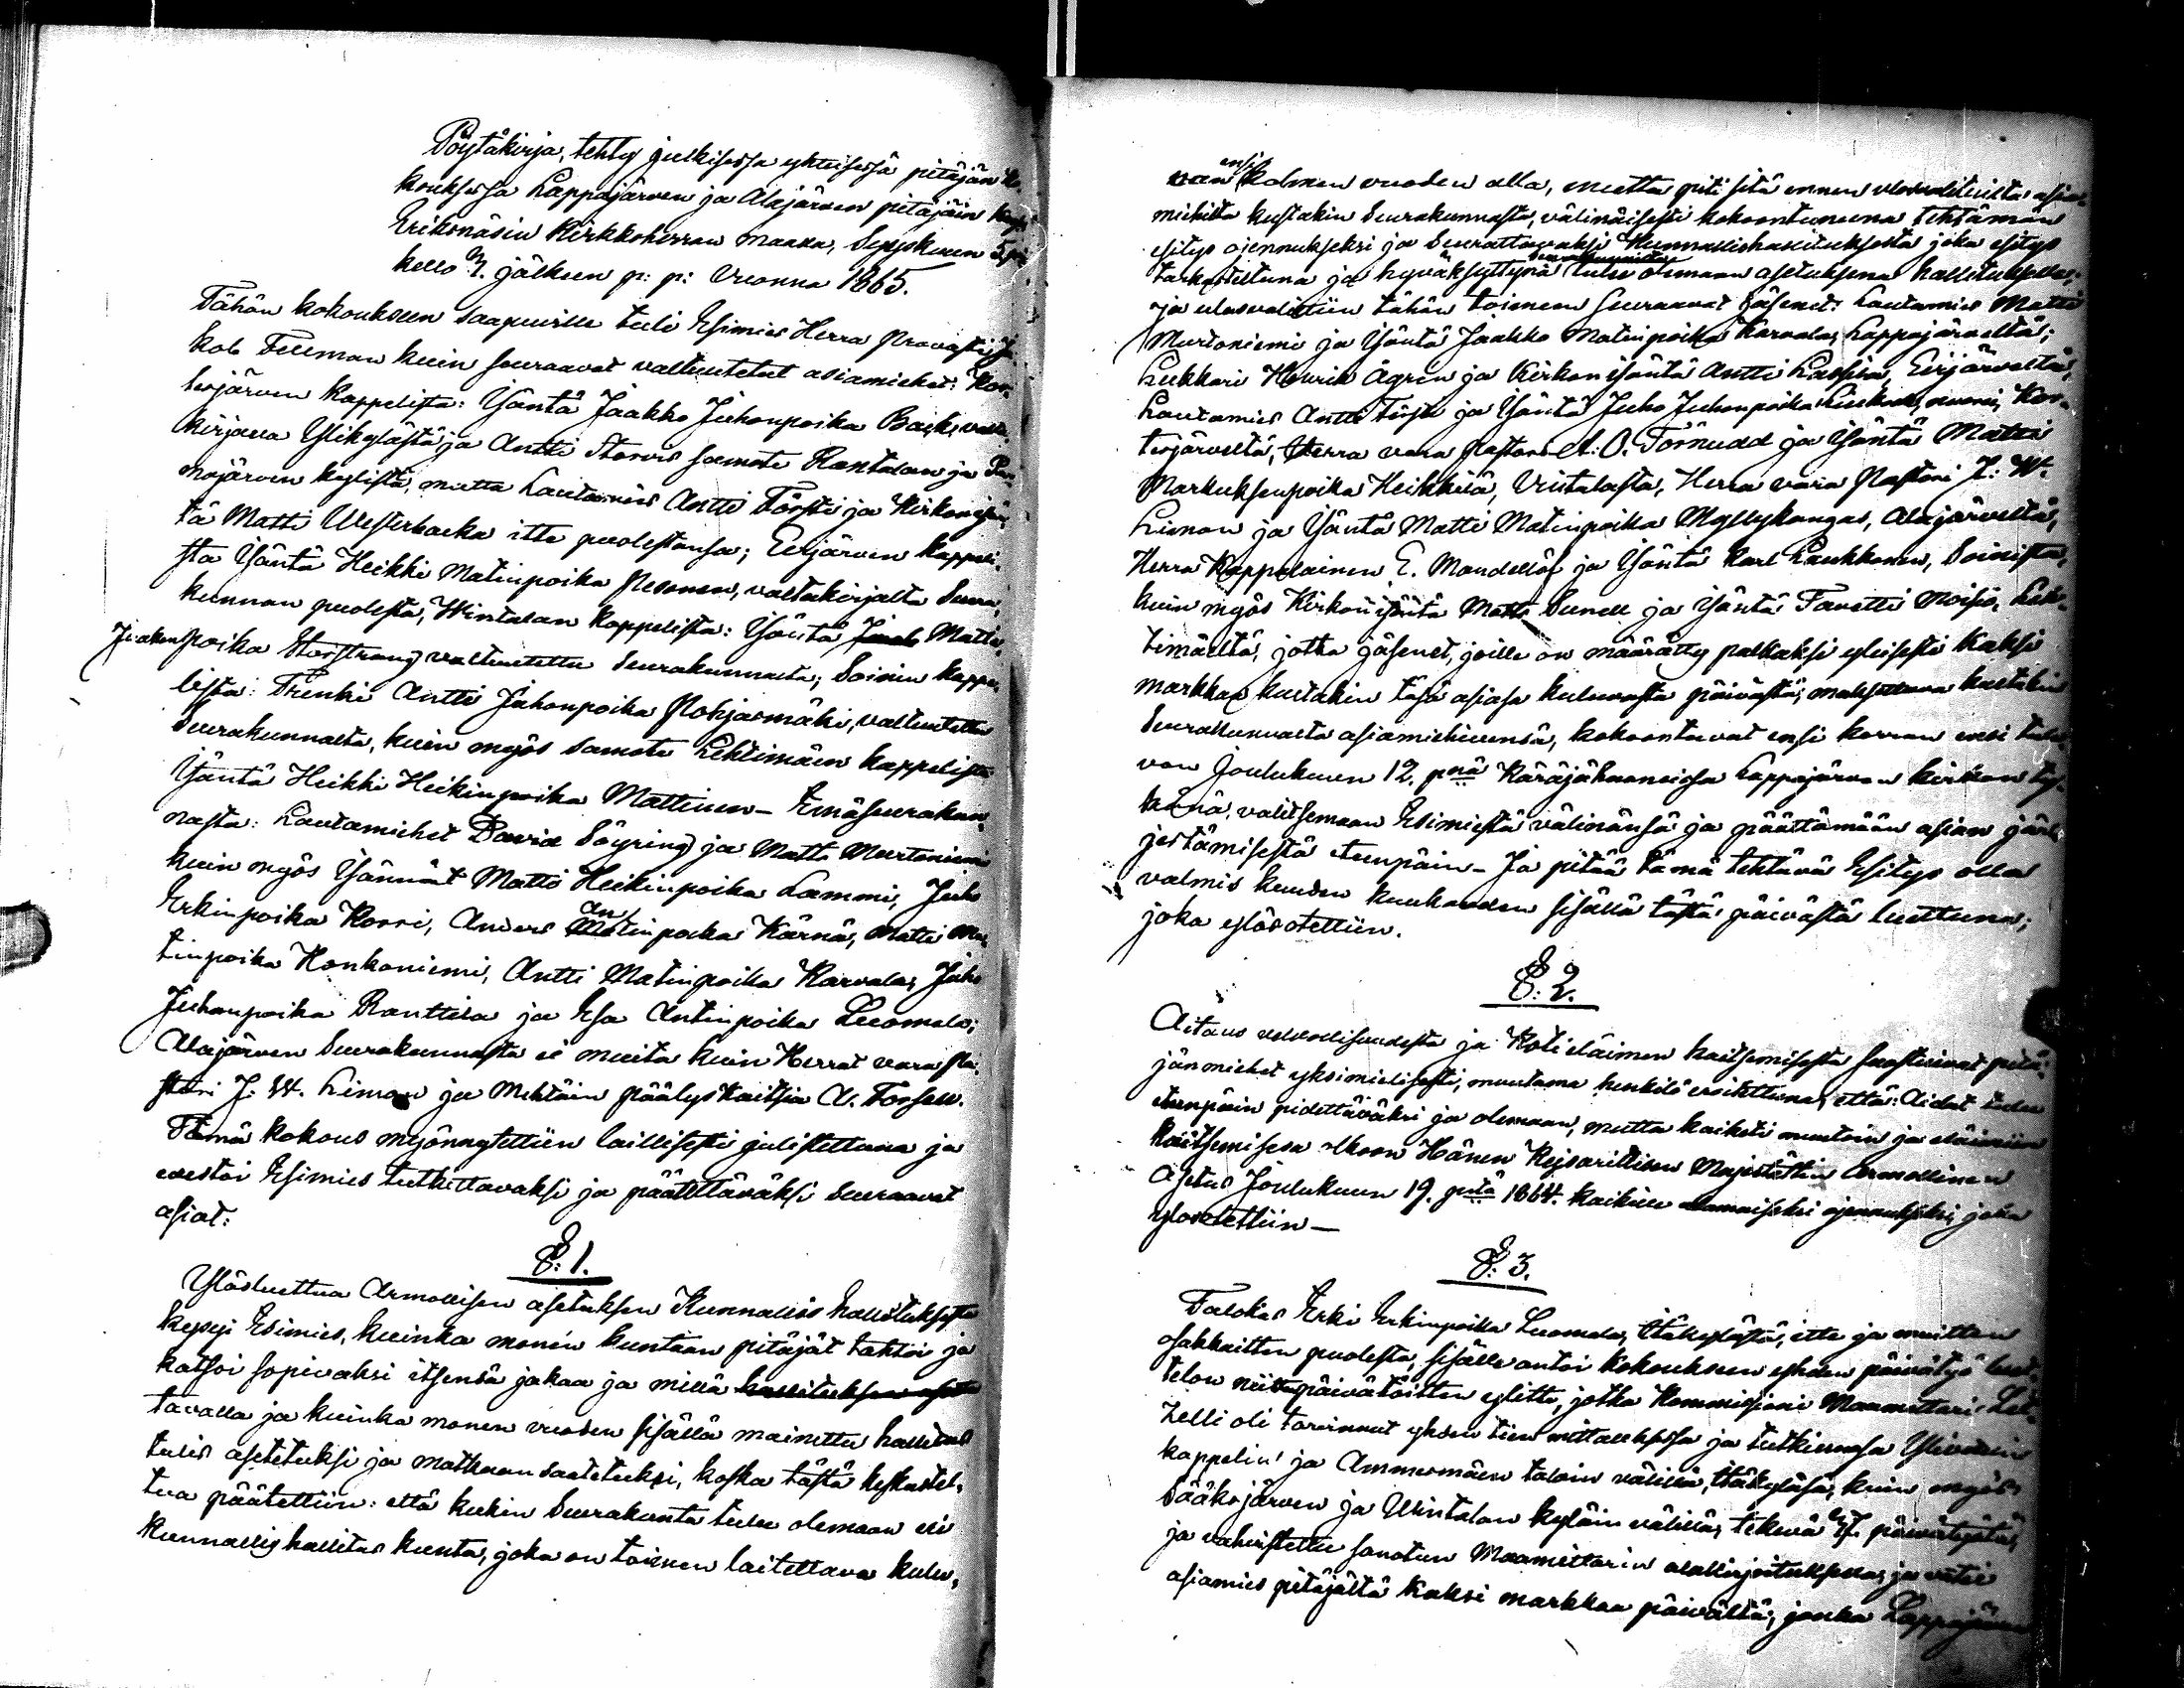 Pöytäkirja, tehty julkisessa yhteisessä pitäjän ko-
kouksessa Lappajärven ja Alajärven pitäjäin
Erikonäsin Kirkkoherran maassa, Syyskuun 5.
kello jälkeen p: p: Vuonna 1865.
Tähän kokoukseen saapuville tuli Esimies Herra Provasti Ja-
kob Fellman kuin seuraavat valtuutetut asiamiehet: Kor-
tesjärven Kappelista: Isäntä Jaakko Juhonpoika Back, valta-
kirjalla Ylikylästä ja Antti Storvis samote Rantalan ja Pur-
mojärven kylistä, mutta Lautamies Antti Försti ja Kirkonisän-
tä Matti Westerbacka itte puolestansa; Evijärven Kappeli-
sta Isäntä Heikki Matinpoika Pesonen, valtakirjalta Seura-
kunnan puolesta, Wintalan Kappelista: Isäntä Jaak Matti
Juhonpoika Storstrang valtuutettu Seurakunnalta; Soinin kappe-
lista: Trenki Antti Juhonpoika Pohjasmäki, valtuutettu
Seurakunnalta, kuin myös samote Lehtimäen kappelista
Isäntä Heikki Heikinpoika Mattinen – Emäseurakun-
nasta: Lautamiehet David Söyring ja Matti Murtoniemi
kuin myös Isännät Matti Heikinpoika Lammi, Juho
Erkinpoika Kossi, Anders An Matinpoika Kärnä, Matti Ma-
tinpoika Honkoniemi, Antti Matinpoika Karvala, Juho
Juhonpoika Ranttila ja Esa Antinpoika Luomala;
Alajärven Seurakunnasta ei muita kuin Herrat vara Pa-
stori J. W. Liman ja Mehtäin päälyskaitsia A. Forsen.
Tämä kokous myönnytettiin laillisesti julistettuna ja
esestoi Esimies tutkittavaksi ja päätettäväksi Seuraavat
asiat:
§: 1.
Ylösluettua Armollisen asetuksen Kunnallis hallituksesta
kysyi Esimies, kuinka moneen kuntaan pitäjät tahtoi ja
katsoi sopivaksi itsensä jakaa ja millä hallituksen
tavalla ja kuinka monen vuoden sisällä mainittu hallitus
tulis asetetuksi ja matkaan saatetuksi, koska tästä keskustel-
tua päätettiin: että kukin Seurakunta tulee olemaan eri
kunnallishallitus kunta, joka on toimeen laitettava kulu-
van ensi kolmen vuoden alla, mutta piti sitä ennen ulosvalituista asia-
miehistä kustakin Seurakunnasta, välinäisesti kokoontuneena tehtämän
esitys ojennukseksi ja Seurattavaksi Kunnallishallituksesta joka esitys
tarkastettuna ja hyväksyttynä tulee olemaan asetuksena hallitukselle;
ja ulosvalittiin tähän toimeen seuraavat jäsenet: Lautamies Matti
Murtoniemi ja Isäntä Jaakko Matinpoika Karvala, Lappajärveltä;
Lukkari Henrik Ågren ja Kirkon isäntä Antti Lassila, Evijärveltä,
Lautamies Antti Försti ja Isäntä Juho Juhonpoika nuori, Kor-
tesjärveltä, Herra vara Pastori A: O. Törnudd ja Isäntä Matti
Markuksenpoika Heikkilä, Vintalasta, Herra vara Pastori J: W.
Liman ja Isäntä Matti Matinpoika Myllykangas, Alajärveltä,
Herra Kappelainen E. Mandellöf ja Isäntä Karl Laukkonen, Soinista,
kuin myös Kirkon isäntä Matti Sunell ja Isäntä Favetti Moisio, Leh-
timäeltä, jotka jäsenet, joille on määrätty palkaksi yleisesti kaksi
markkaa kustakin täsä asiasa kuluvasta päivästä, maksettava kultakin
Seurakunnalta asiamiehillensä, kokoontuvat ensi kerran ensi tule-
van Joulukuun 12. pnä Käräjähuoneissa Lappajärven kirkon ty-
könä, valitsemaan Esimiestä välinänsä ja päättämään asian jär-
jestämisestä etenpäin – Ja pitää tämä tehtävä Esitys olla
valmis kuuden kuukauden sisällä tästä päivästä luettuna;
joka ylösotettiin.
§: 2.
Aitaus velvollisuudesta ja Kotieläimen kaitsemisesta suostuivat pitä-
jänmiehet yksimielisesti, muutama henkilö eroitettuna, että: Aidat tulee
etenpäin pidettäväksi ja olemaan, mutta kaiketi muutoin ja eläimiin
kaitsemisesa olkoon Hänen Keisarillisen Majestätin Armollinen
Asetus Joulukuun 19. pstä 1864. kaikille ojennukseksi, joka
ylösotettiin –
§: 3.
Talokas Erki Erkinpoika Luomala, Itäkylästä, itte ja muitten
osakkaitten puolesta, sisälle antoi Kokoukseen yhden päivätyö luet-
telon niitten päivätöitten ylitte, jotka Kommissioni Maamittari Let-
zelli oli tarvinnut yhden tien mittauksessa ja tutkinnosa Ylivedein
kappelin ja Ammesmäen taloin välillä, Itäkylässä, kuin myös
Sääksjärven ja Wintalan kyläin välillä, tekevä päivätyötä,
ja vahvistettu sanotun Maamittarin allekirjoituksella, ja
asiamies pitäjältä Kaksi markkaa päivältä, jonka Lappajärven